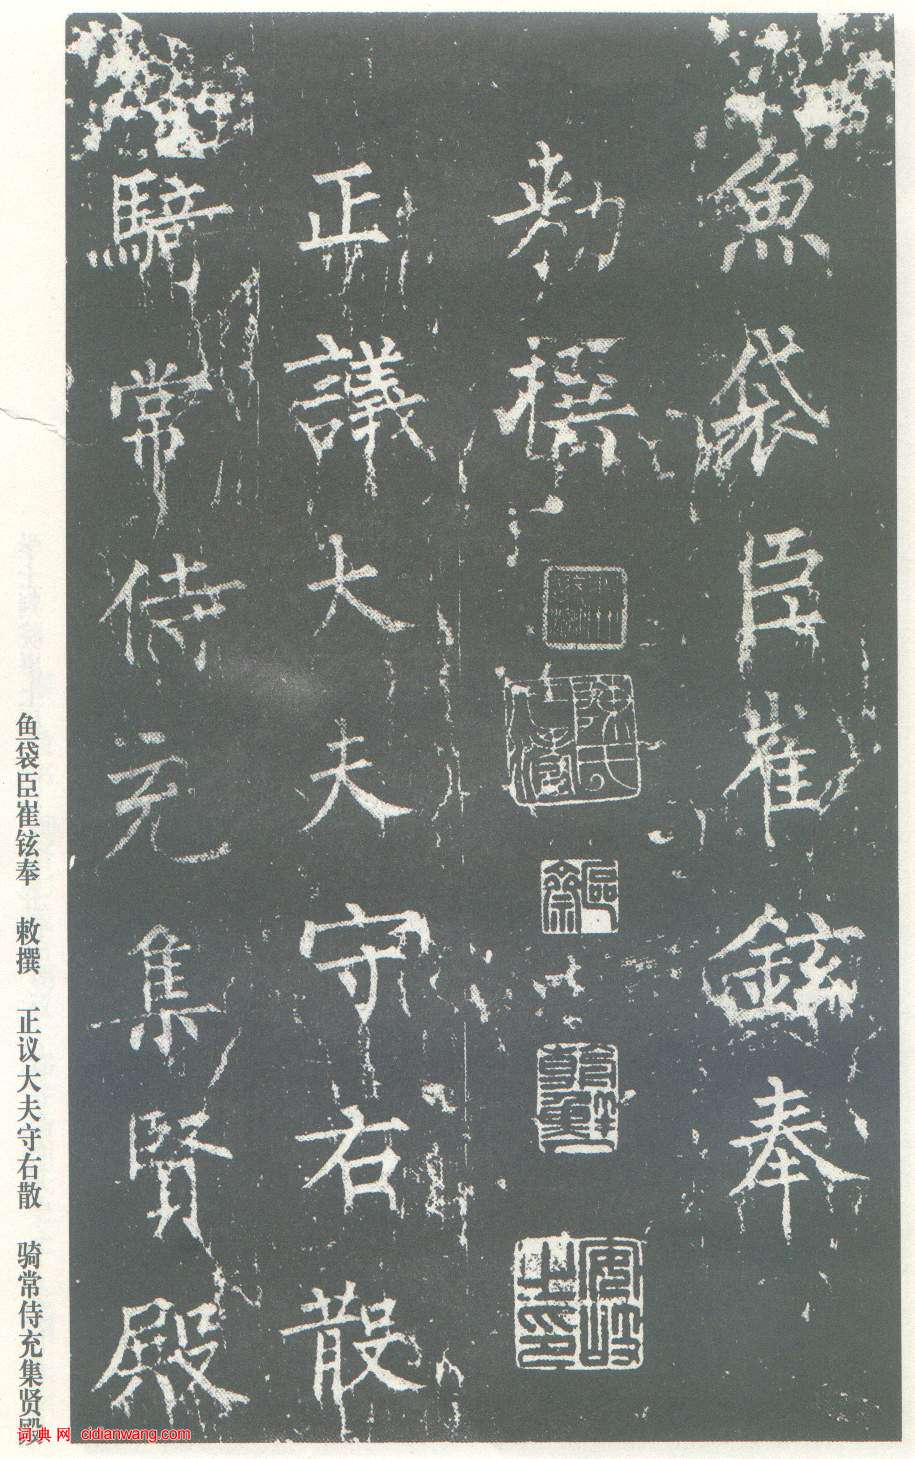 魚袋臣崔鉉奉
勅撰
正議大夫守右散
騎常侍充集賢殿
鱼袋臣崔铉奉 敕撰 正议大夫守右散 骑常侍充集贤殿
词典网 cidianwang.com